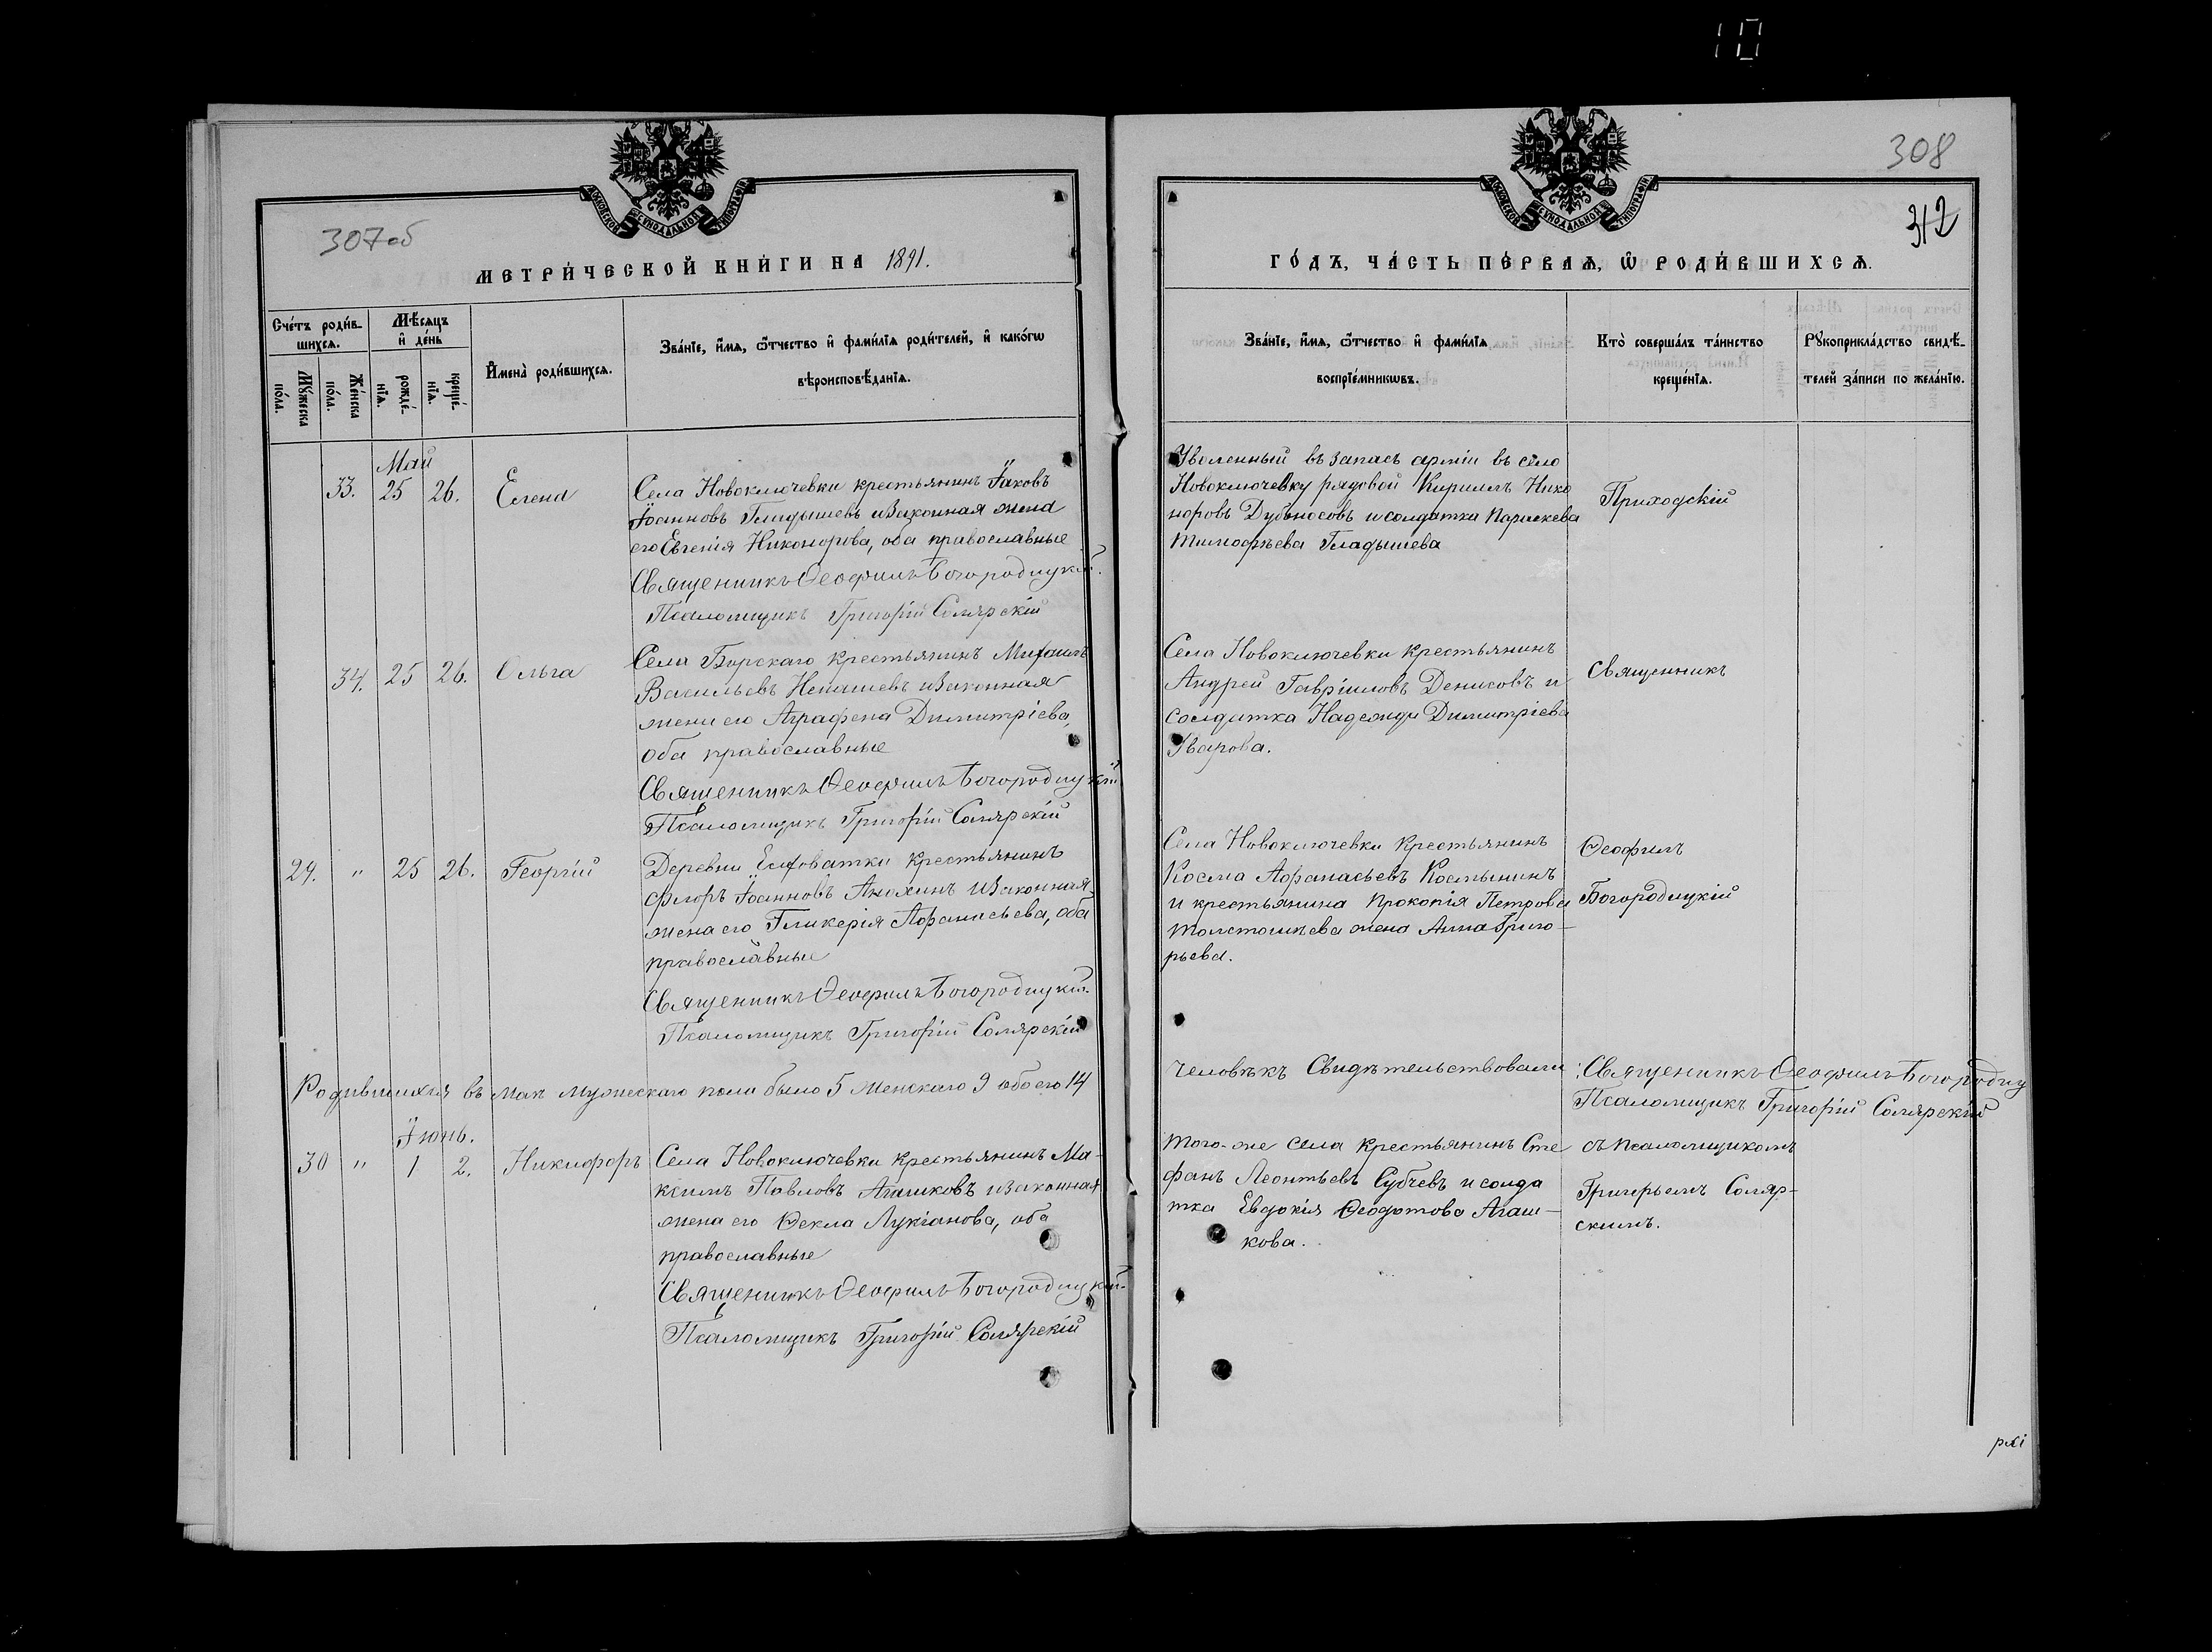 10
МОСКОВСКОЙ СУНОДАЛЬНОЙ ТИПОГРАФІИ
307 об
МЕТРИ́ЧЕСКОЙ КНИ́ГИ НА 1891.
Сче́тъ роди́в-
шихсѧ.
Мѣ́сѧцъ
и҆ де́нь
Мꙋ́жеска
по́ла.
Же́нска
по́ла.
рожде́-
нїѧ.
креще́-
нїѧ.
И҆мена̀ роди́вшихсѧ.
Зва́нїе, и҆́мѧ, ѻ҆́тчество и҆ фами́лїѧ роди́телей, и҆ како́гѡ
вѣроисповѣ́данїѧ.
Май
33. 25 26. Елена
Села Новоключевки крестьянинъ Іаковъ
Іоанновъ Гладышевъ и законная жена
его Евгенія Никонорова, оба православные
Священникъ Ѳеофилъ Богородицкій.
Псаломщикъ Григорій Солярскій
34. 25 26. Ольга
Села Борскаго крестьянинъ Михаилъ
Васильевъ Непашевъ и законная
жена его Аграфена Димитріева,
оба православные
Священникъ Ѳеофилъ Богородицкій
Псаломщикъ Григорій Солярскій
29. " 25 26. Георгій
Деревни Елховатки крестьянинъ
Флоръ Іоанновъ Анохинъ и законная
жена его Гликерія Афанасьева, оба
православные
Священникъ Ѳеофилъ Богородицкій.
Псаломщикъ Григорій Солярскій
Родившихся въ маѣ мужескаго пола было 5 женскаго 9 обоего 14
Іюнь.
30 " 1 2. Никифоръ
Села Новоключевки крестьянинъ Ма-
ксимъ Павловъ Агашковъ и законная
жена его Ѳекла Лукіанова, оба
православные
Священникъ Ѳеофилъ Богородицкій.
Псаломщикъ Григорій Солярскій
МОСКОВСКОЙ СУНОДАЛЬНОЙ ТИПОГРАФІИ
308
312
ГО́ДЪ, ЧА́СТЬ ПЕ́РВАѦ, Ѽ РОДИ́ВШИХСѦ.
Зва́нїе, и҆́мѧ, ѻ҆́тчество и҆ фами́лїѧ
воспрїе́мникѡвъ.
Кто̀ соверша́лъ та́инство
креще́нїѧ.
Рꙋкоприкла́дство свидѣ́-
телей за́писи по жела́нїю.
Уволенный въ запасъ арміи въ село
Новоключевку рядовой Кириллъ Нико
норовъ Дубоносовъ и солдатка Параскева
Тимофѣева Гладышева
Приходскій
Села Новоключевки крестьянинъ
Андрей Гавріиловъ Денисовъ и
солдатка Надежда Димитріева
Уварова.
Священникъ
Села Новоключевки крестьянинъ
Косма Афанасьевъ Костынинъ
и крестьянина Прокопія Петрова
Толстошѣева жена Анна Григо-
рьева.
Ѳеофилъ
Богородицкій
человѣкъ Свидѣтельствовали: Священникъ Ѳеофилъ Богородиц
Псаломщикъ Григорій Солярскій
Того-же села крестьянинъ Сте
фанъ Леонтьевъ Субчевъ и солда
тка Евдокія Ѳеодотова Агаш-
кова.
съ псаломщикомъ
Григорьемъ Соляр-
скимъ.